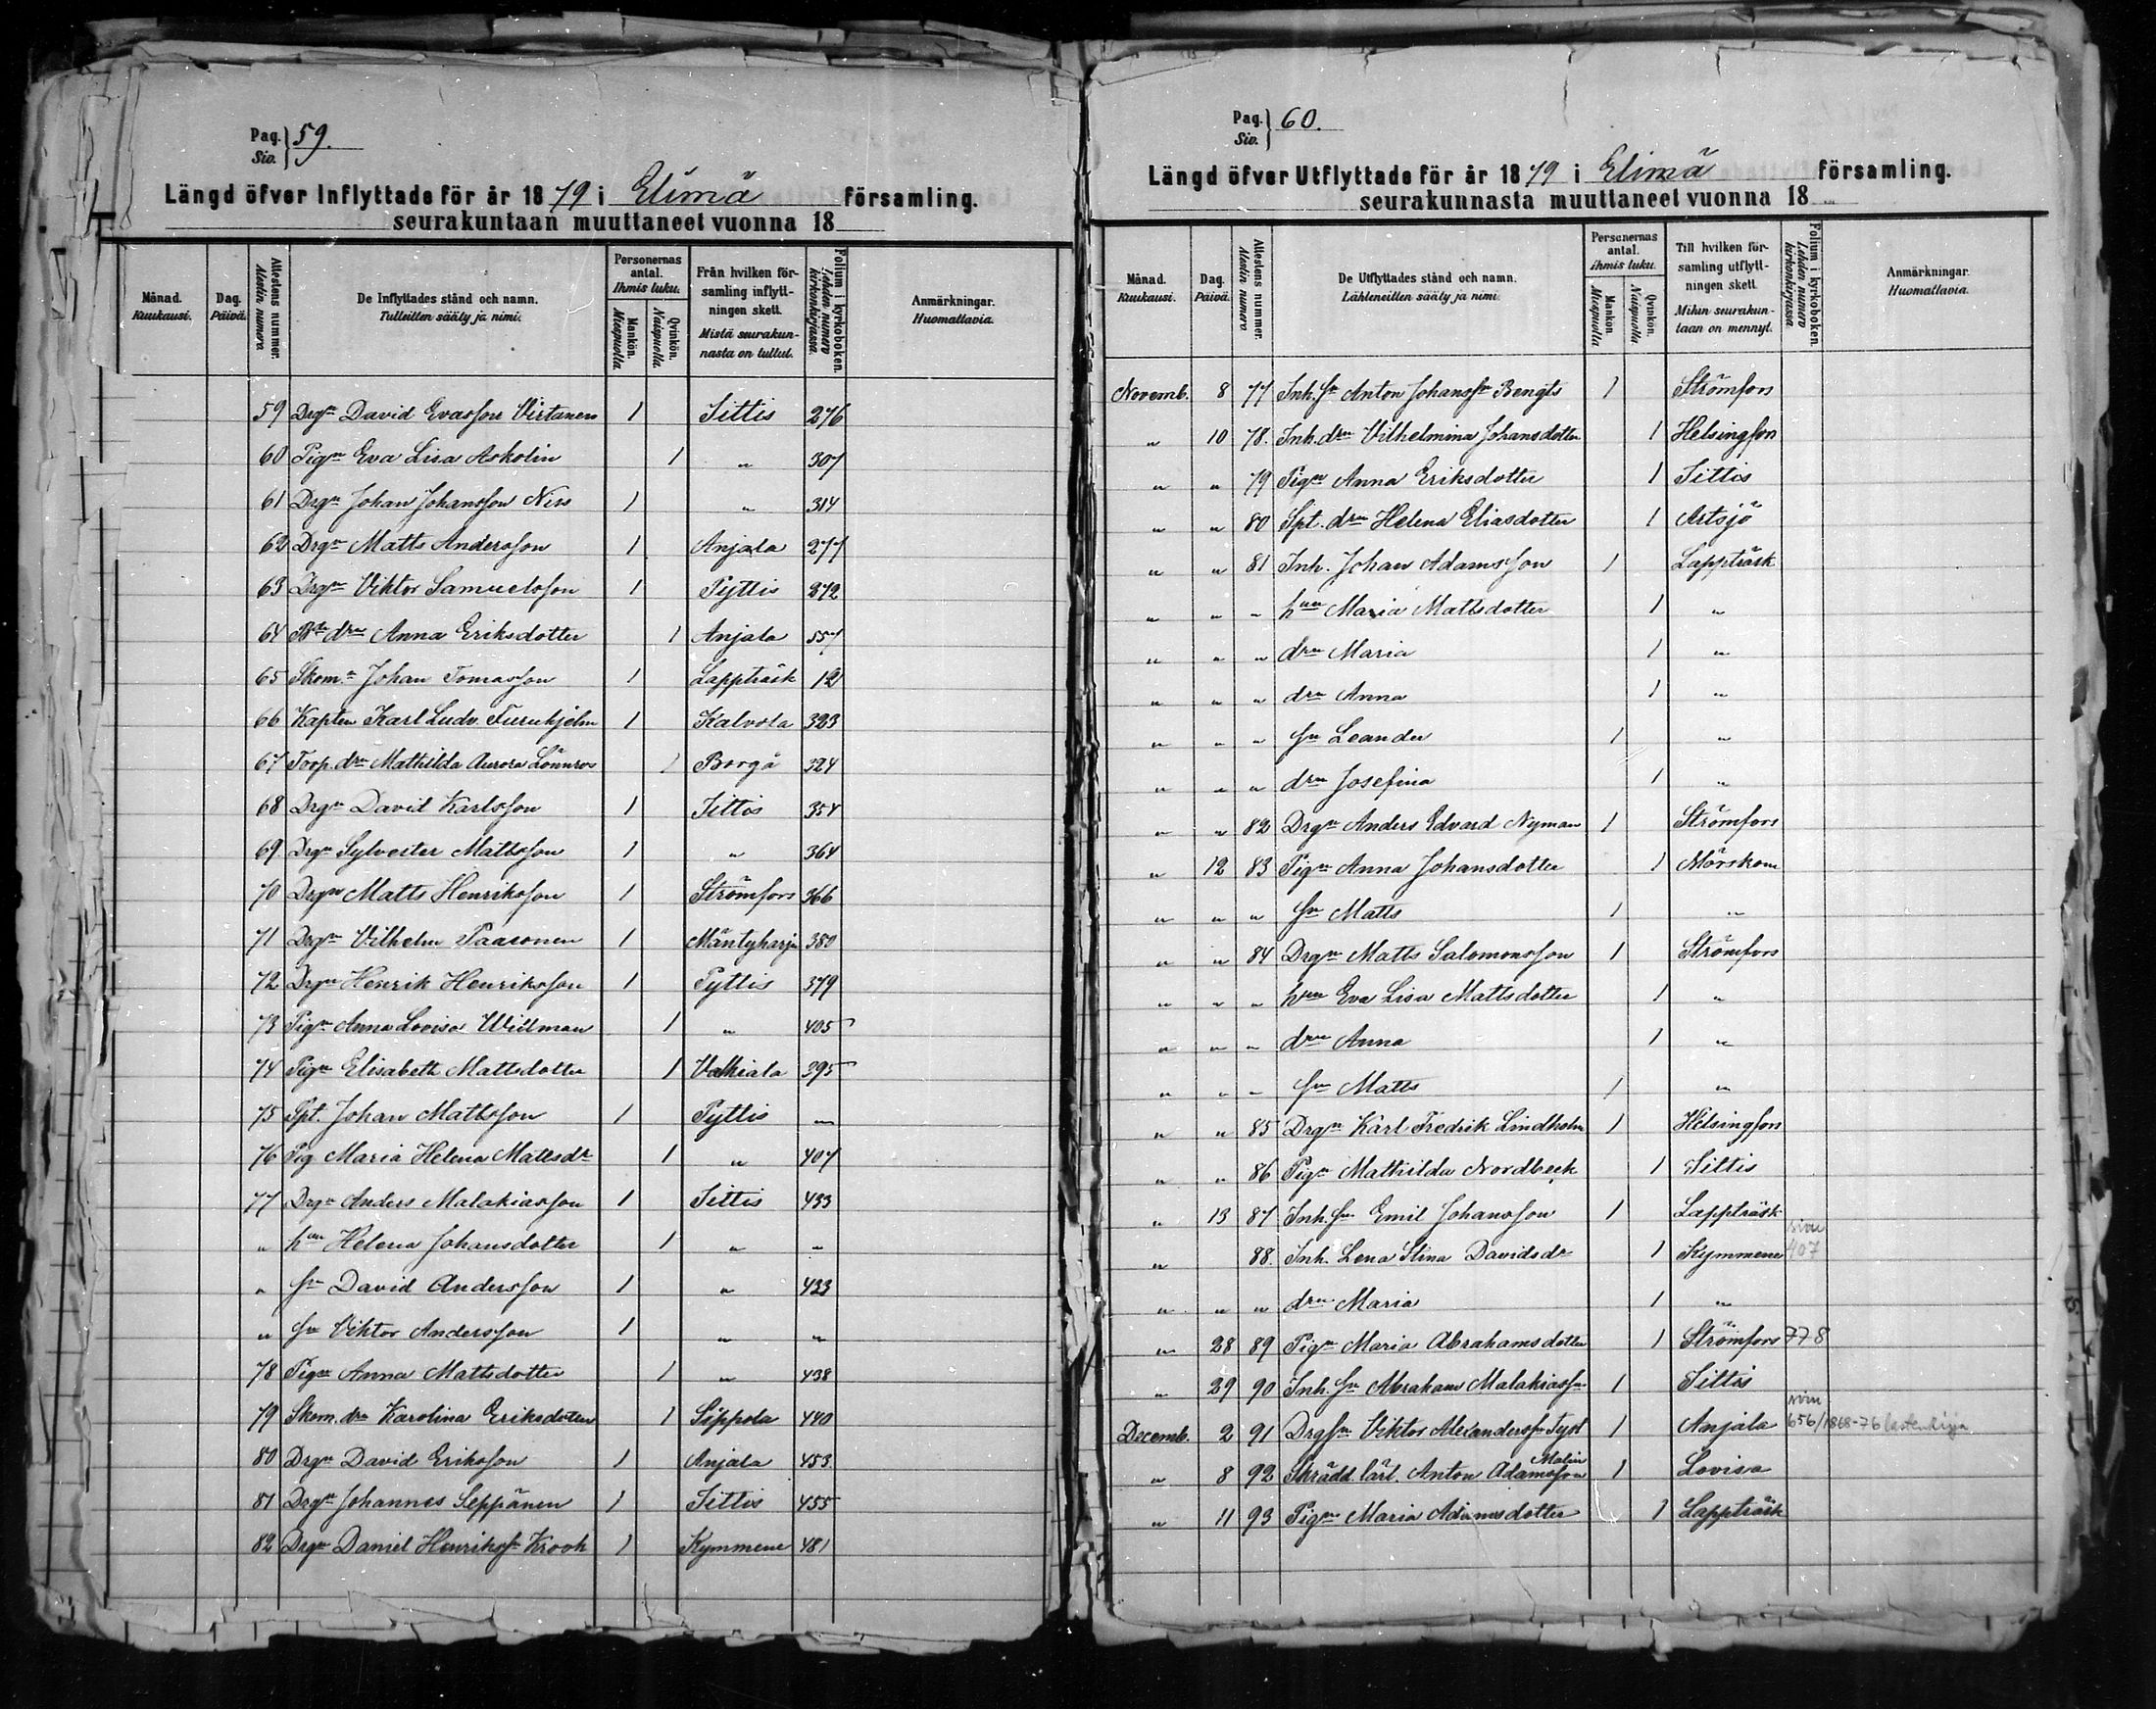 Pag. Siv. } 59.
Längd öfver Inflyttade för år 1879 i Elimä församling.
seurakuntaan muuttaneet vuonna 18
Månad. Kuukausi. Dag. Päivä. Attestens nummer. Atestin numero De Inflyttades stånd och namn. Tulleitten sääty ja nimi. Personernas antal. Ihmis luku. Mankön. Miespuolia Qvinkön. Naispuolia Från hvilken församling inflyttningen skett. Mistä seurakunnasta on tullut. Folium i kyrkoboken. Lehden numero kirkonkirjassa. Anmärkningar. Huomattavia.
59 Drgn David Evasson Virtanen 1 Iittis 276
60 Pign Eva Lisa Askolin 1 " 307
61 Drgn Johan Johansson Niro 1 " 314
62 Drgn Matts Andersson 1 Anjala 277
63 Drgn Viktor Samuelsson 1 Pyttis 372
64 Bde drn Anna Eriksdotter 1 Anjala 557
65 Skom.n Johan Tomasson 1 Lappträsk 12
66 Kapten Karl Ludv. Furuhjelm 1 Kalvola 323
67 Torp. drn Mathilda Aurora Lönnros 1 Borgå 324
68 Drgn David Karlsson 1 Iittis 354
69 Drgn Sylvester Mattsson 1 " 364
70 Drgn Matts Henriksson 1 Strömfors 366
71 Drgn Vilhelm Paasonen 1 Mäntyharju 380
72 Drgn Henrik Henriksson 1 Pyttis 379
73 Pign Anna Lovisa Willman 1 " 405
74 Pign Elisabeth Mattsdotter 1 Valkiala 395
75 Spt. Johan Mattsson 1 Pyttis "
76 Pig Maria Helena Mattsdr 1 " 407
77 Drgn Anders Malakiasson 1 Iittis 433
" hun Helena Johansdotter 1 " "
" sn David Andersson 1 " 433
" sn Viktor Andersson 1 " "
78 Pign Anna Mattsdotter 1 " 438
79 Skom. drn Karolina Eriksdotter 1 Sippola 440
80 Drgn David Eriksson 1 Anjala 453
81 Drgn Johannes Seppänen 1 Iittis 455
82 Drgn Daniel Henrikssn Krook 1 Kymmene 481
Pag. Siv. } 60.
Längd öfver Utflyttade för år 1879 i Elimä församling.
seurakunnasta muuttaneet vuonna 18
Månad. Kuukausi. Dag. Päivä. Attestens nummer. Atestin numero De Utflyttades stånd och namn. Lähteneitten sääty ja nimi. Personernas antal. Ihmis luku. Mankön. Miespuolia Qvinkön. Naispuolia Till hvilken församling utflyttningen skett. Mihin seurakuntaan on mennyt. Folium i kyrkoboken. Lehden numero kirkonkirjassa. Anmärkningar. Huomattavia.
Novemb. 8 77 Inh. sn Anton Johanssn Bengts 1 Strömfors
" 10 78. Inh. drn Vilhelmina Johansdotter 1 Helsingfors
" " 79 Pign Anna Eriksdotter 1 Iittis
" " 80 Spt. drn Helena Eliasdotter 1 Artsjö
" " 81 Inh. Johan Adamsson 1 Lappträsk
" " " hun Maria Mattsdotter 1 "
" " " drn Maria 1 "
" " " drn Anna 1 "
" " " sn Leander 1 "
" " " drn Josefina 1 "
" " 82 Drgn Anders Edvard Nyman 1 Strömfors
" 12 83 Pign Anna Johansdotter 1 Mörskom
" " " sn Matts 1 "
" " 84 Drgn Matts Salomonsson 1 Strömfors
" " " hun Eva Lisa Mattsdotter 1 "
" " " drn Anna 1 "
" " " sn Matts 1 "
" " 85 Drgn Karl Fredrik Lindholm 1 Helsingfors
" " 86 Pign Mathilda Nordbeck 1 Iittis
" 13 87 Inh. sn Emil Johansson 1 Lappträsk
" 88. Inh. Lena Stina Davidsdr 1 Kymmene sivu 407
" " " drn Maria 1 "
" 28 89 Pign Maria Abrahamsdotter 1 Strömfors 778
" 29 90 Inh. sn Abraham Malakiassn 1 Iittis
Decemb. 2 91 Drgsn Viktor Alexanderssn Tyst 1 Anjala sivu 656/1868-76 lastenkirja
" 8 92 Skrädd. lärl. Anton Adamsson Malin 1 Lovisa
" 11 93 Pign Maria Adamsdotter 1 Lappträsk